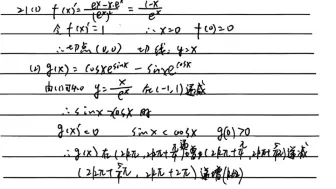 21.(1) f(x)'= (e^x-x·e^x)/(e^x)^2 = (1-x)/e^x
令 f(x)'=1 ∴x=0 f(0)=0
∴切点(0,0) 切线 y=x
(2) g(x)= cosxe^sinx - sinxe^cosx
由(1)可知 y= x/e^x 在(-1,1)递
∴sinx cosx 时
g(x)'<0 sinx<cosx g(x)>0
∴g(x) 在 (2kπ, 2kπ+π/4)递 (2kπ+π/4, 2kπ+5/4π)递减
(2kπ+5/4π, 2kπ+2π) 递增